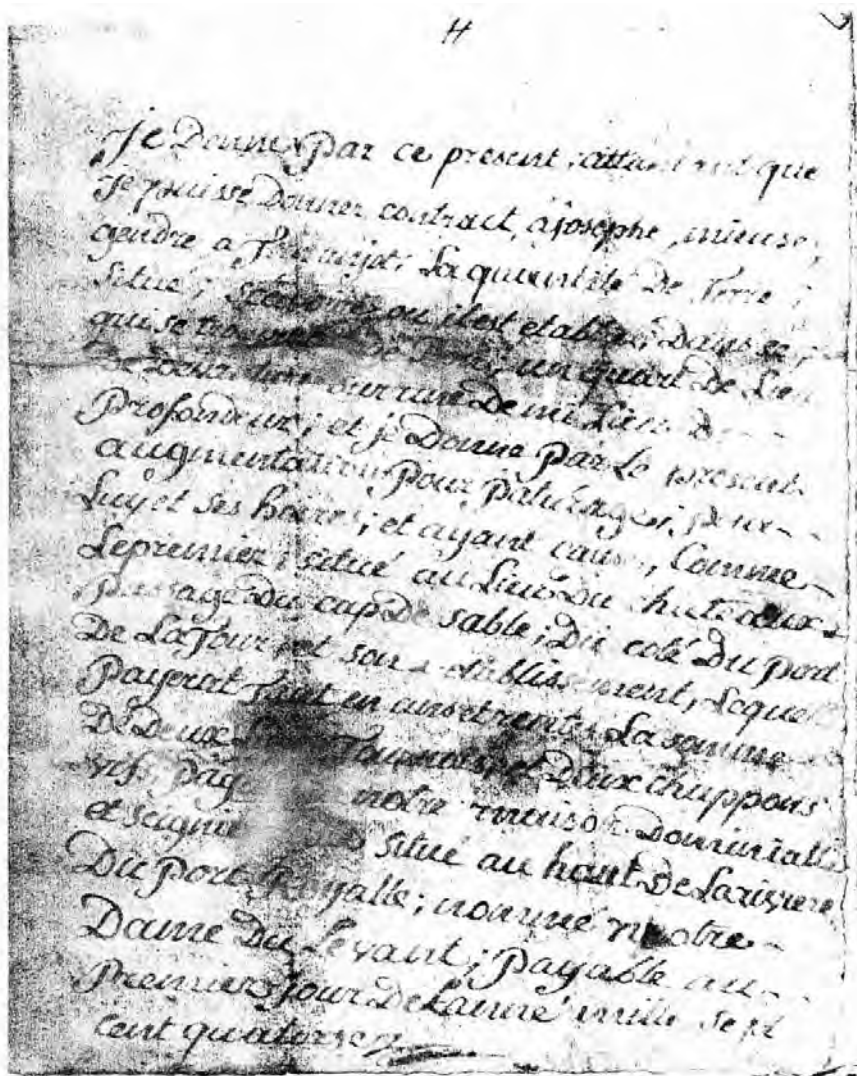 H
je Donne par ce present, attandant que
je puisse Donner contract, a josephe, mieuse,
gendre a, La quientité De Terre;
situé; ou il est etably; Dans ce;
qui se un quart De Lieu
sur une Demi Lieu De
profondeur; et je Donne par Le present
augmentation, Pour paturages, pour
Luy et ses hoires, et ayant cause, Comme
Lepremier; situé au Lieu Du chut aux
passage Du cap De sable, Du coté Du port
De LaTour et son etablissement, Lequel
Payerat en Lasomme
De Deux Tournois, et Deux chappons
vifs, notre maison Dominialle
et situé au haut De Lariviere
Du Port Royalle; nommé nostre
Dame Du Levant; Payable au
Premier jour De Lanné mille sept
cent quatorse